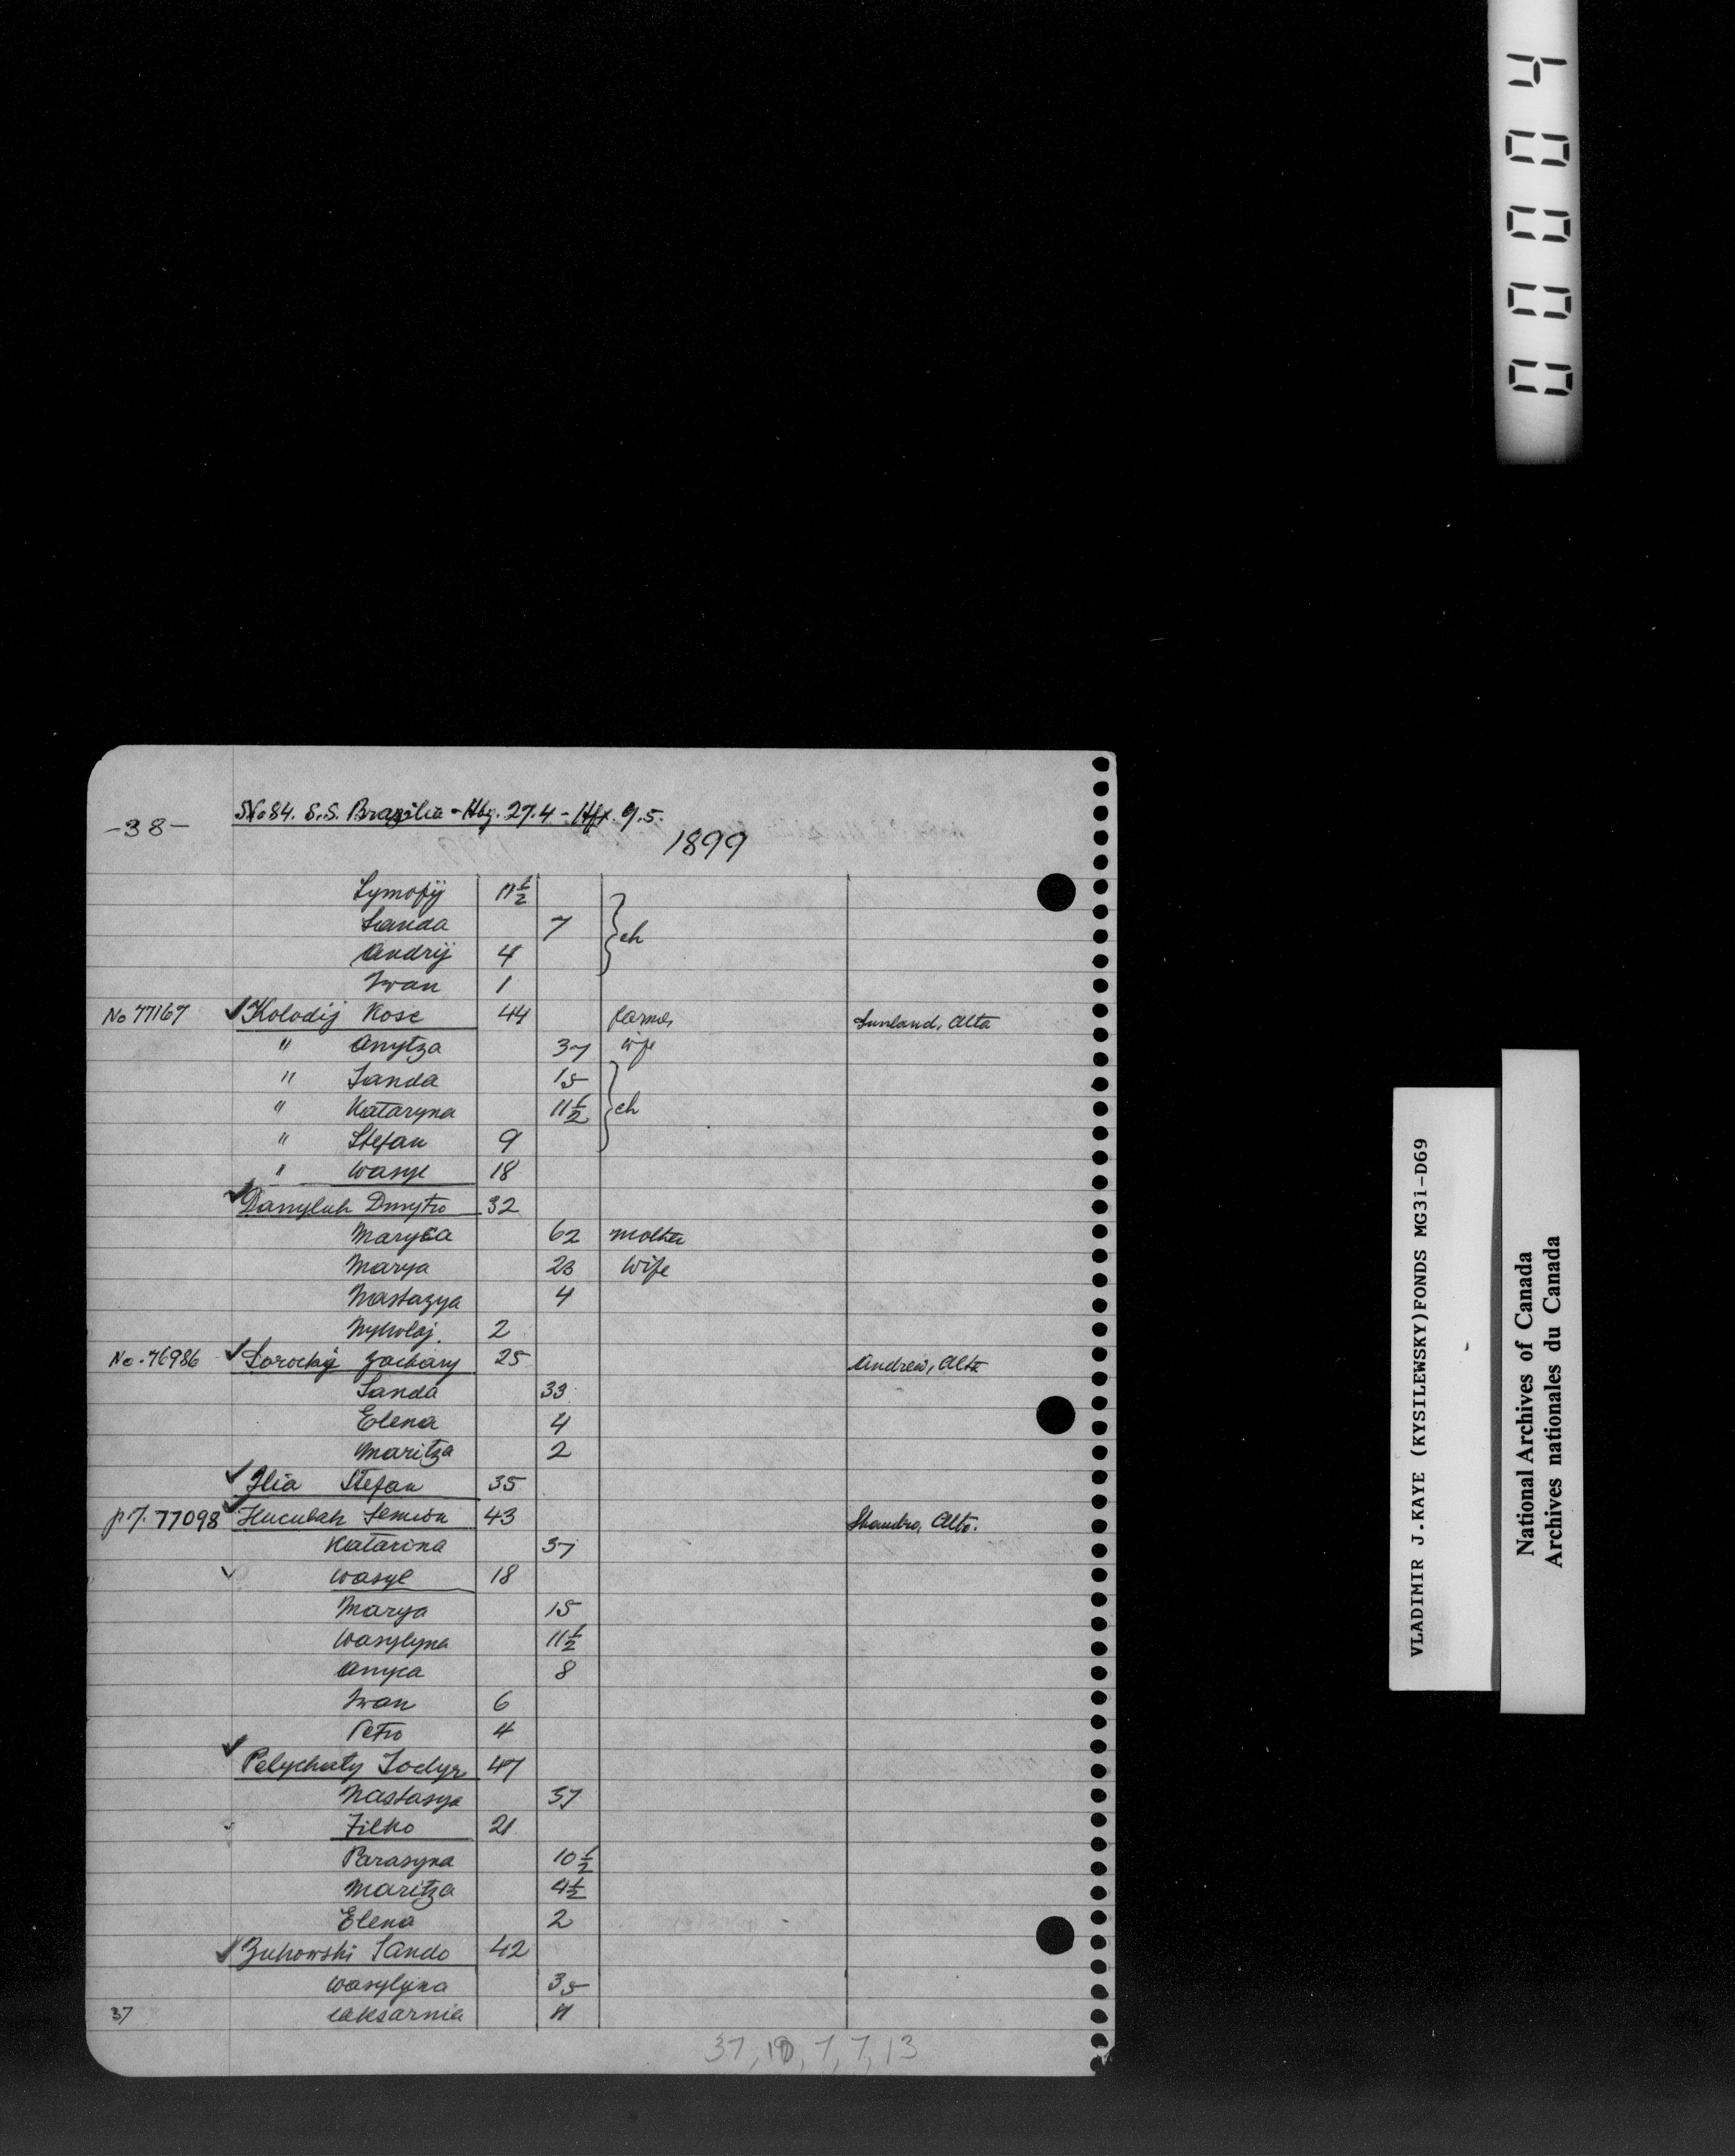 00004
-38-
SNo 84. S.S. Brazilia - Hbg. 27.4 - Hfx. 9.5.
1899
Tymofij 11 1/2
Sanda 7 } ch
Andrij 4
Iwan 1
No 77167 ✓ Kolodij Kose 44 farmer Sunland, Alta
" Anytza 37 wife
" Sanda 15
" Kataryna 11 1/2 } ch
" Stefan 9
" Wasyl 18
✓ Danyluk Dmytro 32
Maryca 62 mother
Marya 23 wife
Nastazya 4
Mykolaj 2
No. 76986 ✓ Sorochij Zachary 25 Andrew, Alta
Sanda 33
Elena 4
Maritza 2
✓ Ilia Stefan 35
p 7. 77098 ✓ Huculak Semion 43 Shandro, Alta.
Katarina 37
✓ Wasyl 18
Marya 15
Wasylyna 11 1/2
Anyca 8
Iwan 6
Petro 4
✓ Pelychaty Todyr 47
Nastasya 37
Filko 21
Parasyna 10 1/2
Maritza 4 1/2
Elena 2
✓ Zukowski Sando 42
Wasylyna 35
37 11
37, 7, 7, 13
VLADIMIR J.KAYE (KYSILEWSKY)FONDS MG31-D69
National Archives of Canada
Archives nationales du Canada